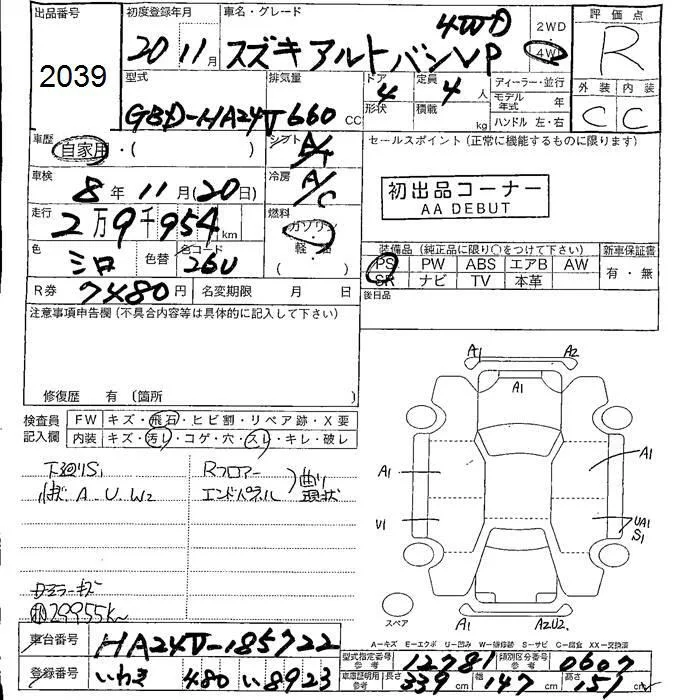 出品番号
2039
初度登録年月
20 11月
車名・グレード
4WD
スズキアルトバンVP
2WD
4W
評価点
R
型式
GBD-HA24V
排気量
660 CC
ドア
4
形状
定員
4人
積載
kg
ディーラー・並行
モデル年式 年
ハンドル 左・右
外装 内装
C C
車歴
自家用・( )
シフト
A/T
セールスポイント (正常に機能するものに限ります)
初出品コーナー
AA DEBUT
車検
8年11月(20日)
冷房
A/C
走行
2万9千954km
燃料
ガソリン
軽油
( )
色
シロ
色替
色コード
26U
装備品 (純正品に限り○をつけて下さい)
新車保証書
PS PW ABS エアB AW
SR ナビ TV 本革
有・無
R券 7480円
名変期限 月 日
後日品
注意事項申告欄(不具合内容等は具体的に記入して下さい)
修復歴 有 (箇所 )
検査員
記入欄
FW キズ・飛石・ヒビ割・リペア跡・X要
内装 キズ・汚レ・コゲ・穴・スレ・キレ・破レ
下廻りS1
A-U.W2
Rフロアー
エンドパネル
曲り
現状
29955k
A1 A2
A1
A1
A1
V1
UA1
S1
A1
A2U2.
スペア
A-キズ E-エクボ U-凹み W-補修跡 S-サビ C-腐食 XX-交換済
車台番号
HA24V-185722
登録番号
いわき 480 い8923
型式指定番号
参考
12781
類別区分番号
参考
0607
車庫証明用
参考
長さ 339cm
幅 147cm
高さ 151cm